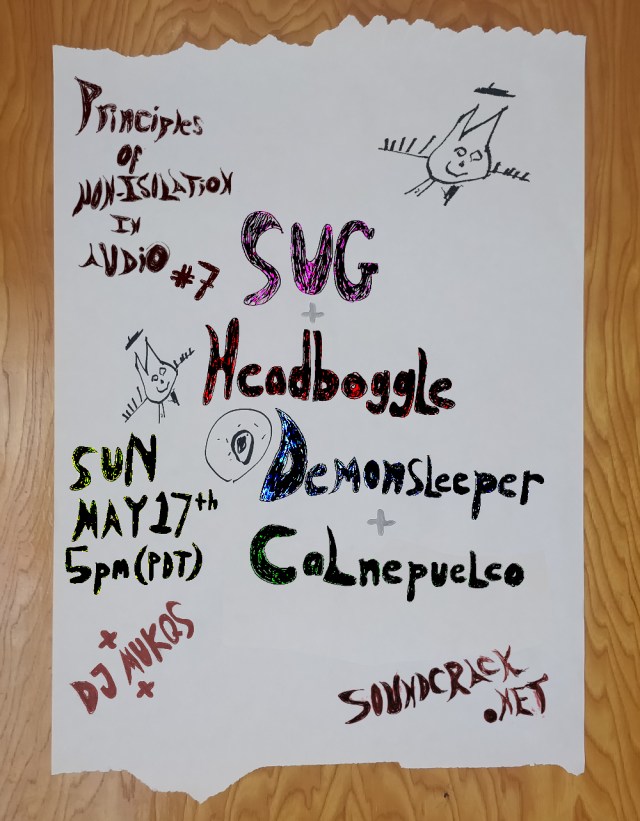 Principles
of
NON-ISOLATION
IN
AUDIO #7
SUG
+
Headboggle
DEMONSLEEPER
+
CaLnepueLco
SUN
MAY 17th
5pm (PDT)
DJ MUKQS
SOUNDCRACK
.NET